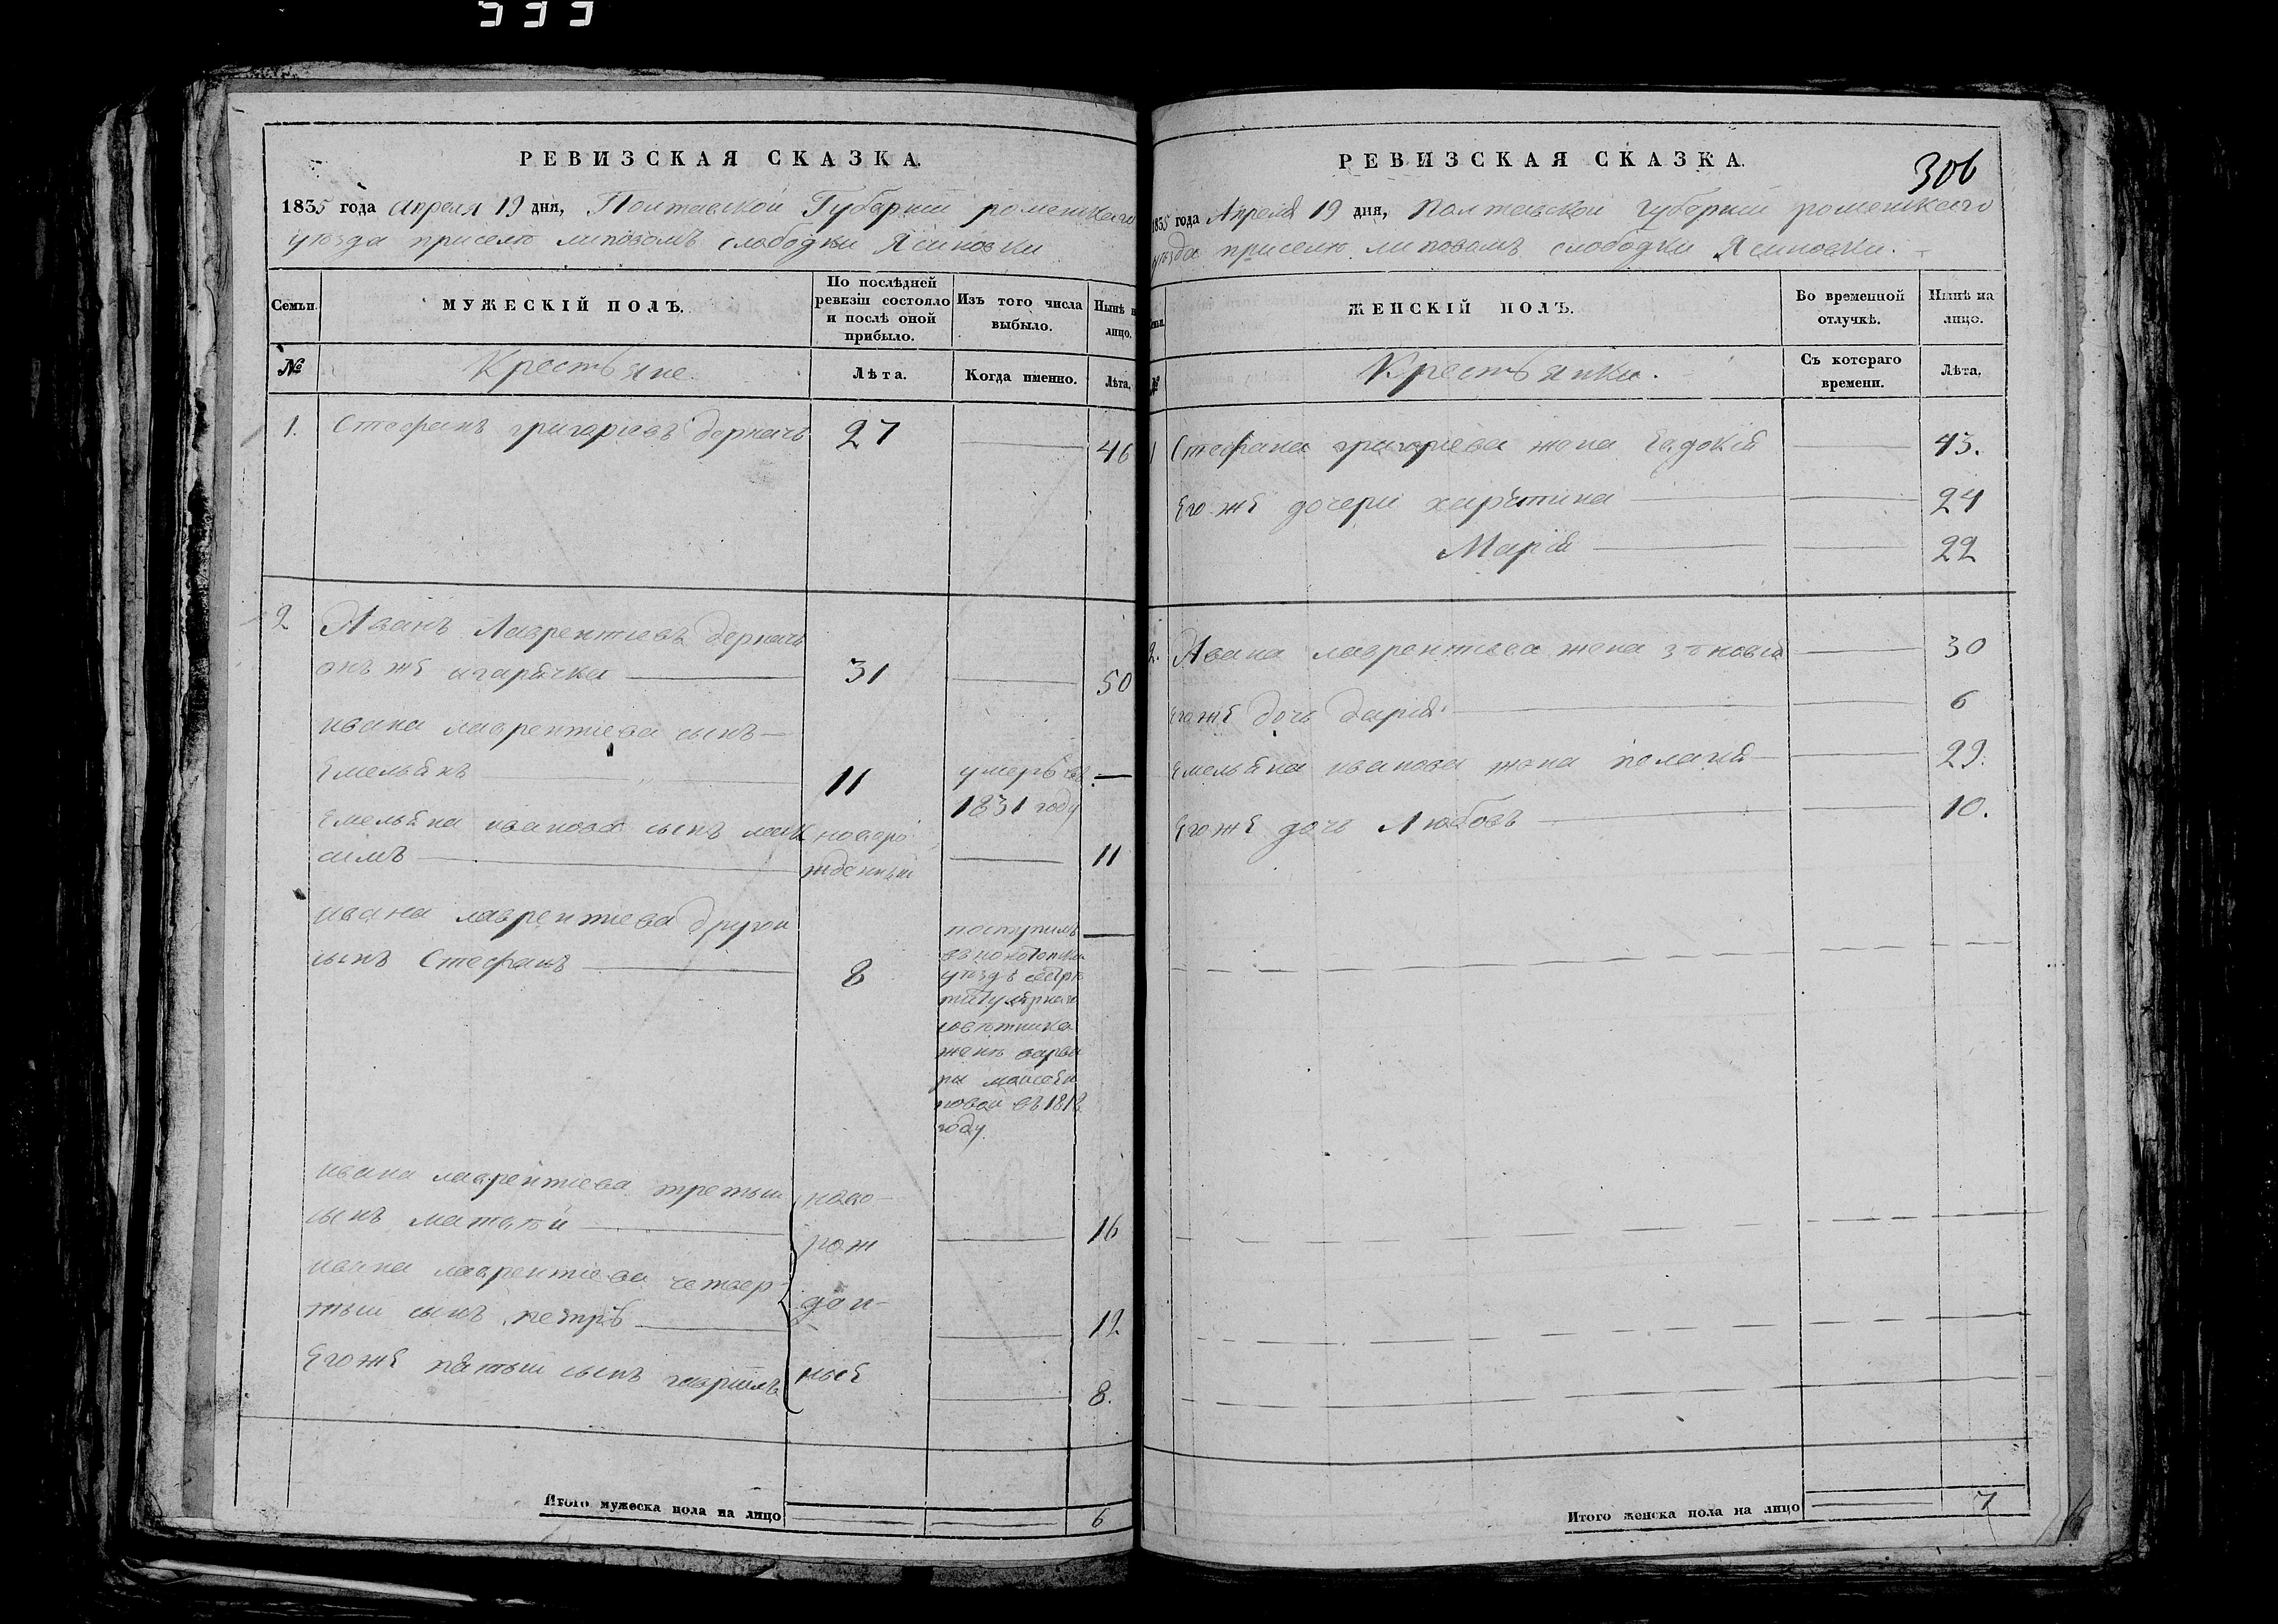 533
РЕВИЗСКАЯ СКАЗКА.
1835 года апреля 19 дня, Полтавской Губернии роменского
уѣзда приселѣ липовомъ слободки Ясиновки
Семьи.
МУЖЕСКІЙ ПОЛЪ.
По послѣдней ревизіи состояло и послѣ оной прибыло.
Изъ того числа выбыло.
Нынѣ на лицо.
№
Крестьяне.
Лѣта.
Когда именно.
Лѣта.
1. Стефанъ григориевъ деркачь 27 46
2 Иванъ Лаврентиевъ деркачь
онъ же 31 50
ивана лаврентиева сынъ
Емельянъ 11 умеръ въ
1831 году
Емельяна иванова сынъ мак новоро
симъ жденный 11
ивана лаврентиева другои
сынъ Стефанъ 8
поступилъ
въ конотопски
уѣздъ
титулярного
совѣтника
женѣ варва
ры моисеен
ковой въ 1818
году.
ивана лаврентиева третьи ново-
сынъ матвѣй 16
рож
ивана лаврентиева четвер-
ден-
тыи сынъ петръ 12
Егоже пятыи сынъ гаврiилъ ные 8.
Итого мужеска пола на лицо 6
РЕВИЗСКАЯ СКАЗКА.
306
1835 года Апреля 19 дня, Полтавской губернии роменского
уѣзда приселѣ липовомъ слободки Ясиновки.
Семьи.
ЖЕНСКІЙ ПОЛЪ.
Во временной отлучкѣ.
Нынѣ на лицо.
№
Крестьянки.
Съ котораго времени.
Лѣта.
1 Стефана григориева жена Евдокія 43.
Егоже дочери харитина 24
Марія 22
2. Ивана лаврентиева жена зѣновія 30
Егоже дочь дарія 6
Емельяна иванова жена пелагия 29.
Егоже дочь Любовъ 10.
Итого женска пола на лицо 7